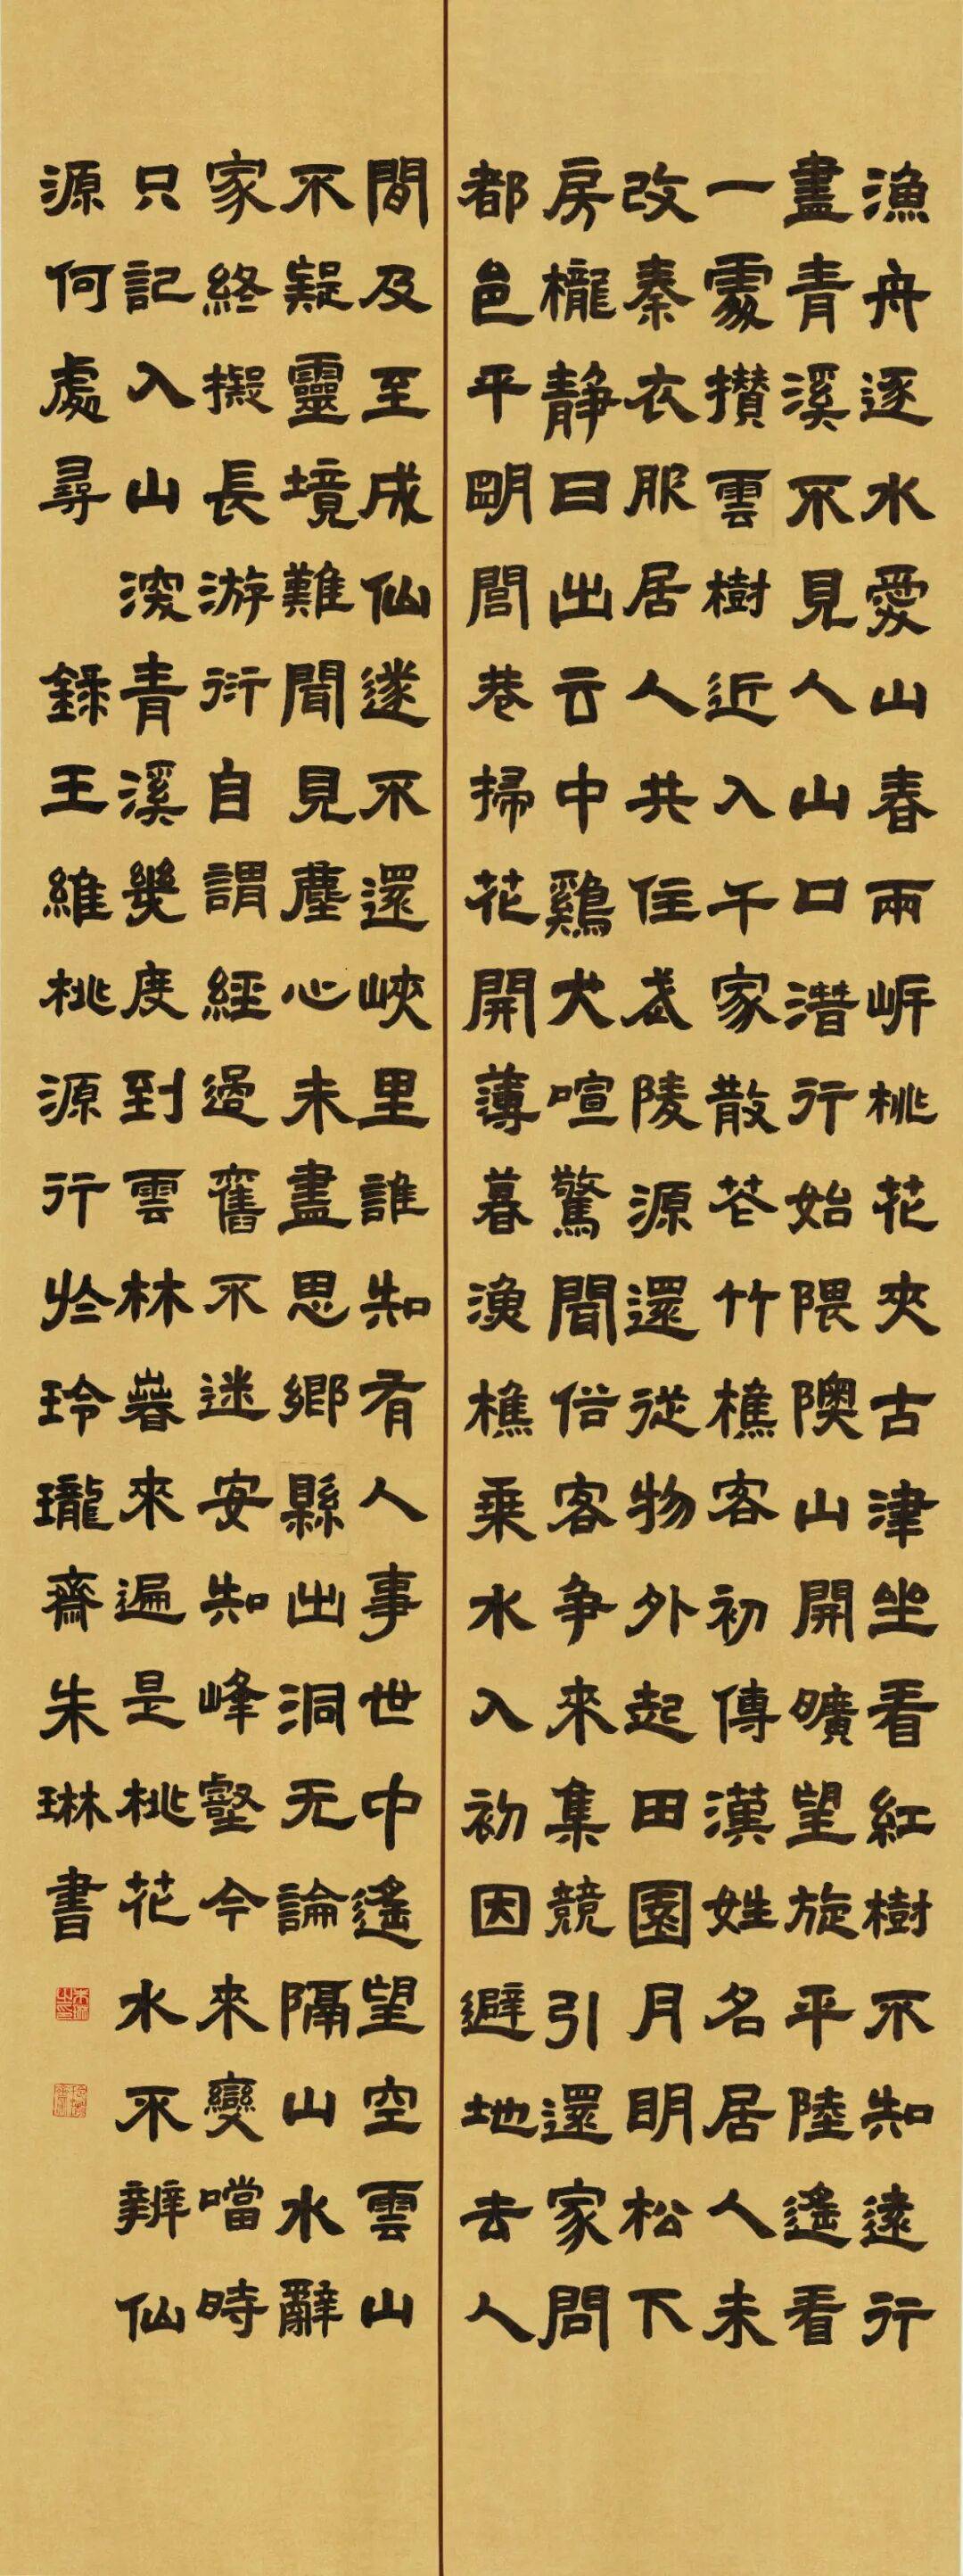 漁舟逐水愛山春兩岍桃花夾古津坐看紅樹不知遠行
盡青溪不見人山口潛行始隈隩山開曠望旋平陸遙看
一處攢雲樹近入千家散花竹樵客初傳漢姓名居人未
改秦衣服居人共住武陵源還從物外起田園月明松下
房櫳静日出云中鷄犬喧驚聞俗客争來集競引還家問
都邑平明閭巷掃花開薄暮漁樵乘水入初因避地去人
間及至成仙遂不還峽里誰知有人事世中遙望空雲山
不疑靈境難聞見塵心未盡思鄉縣出洞无論隔山水辭
家終擬長游衍自謂經過舊不迷安知峰壑今來變噹時
只記入山深青溪幾度到雲林春來遍是桃花水不辨仙
源何處尋 錄王維桃源行於玲瓏齋朱琳書